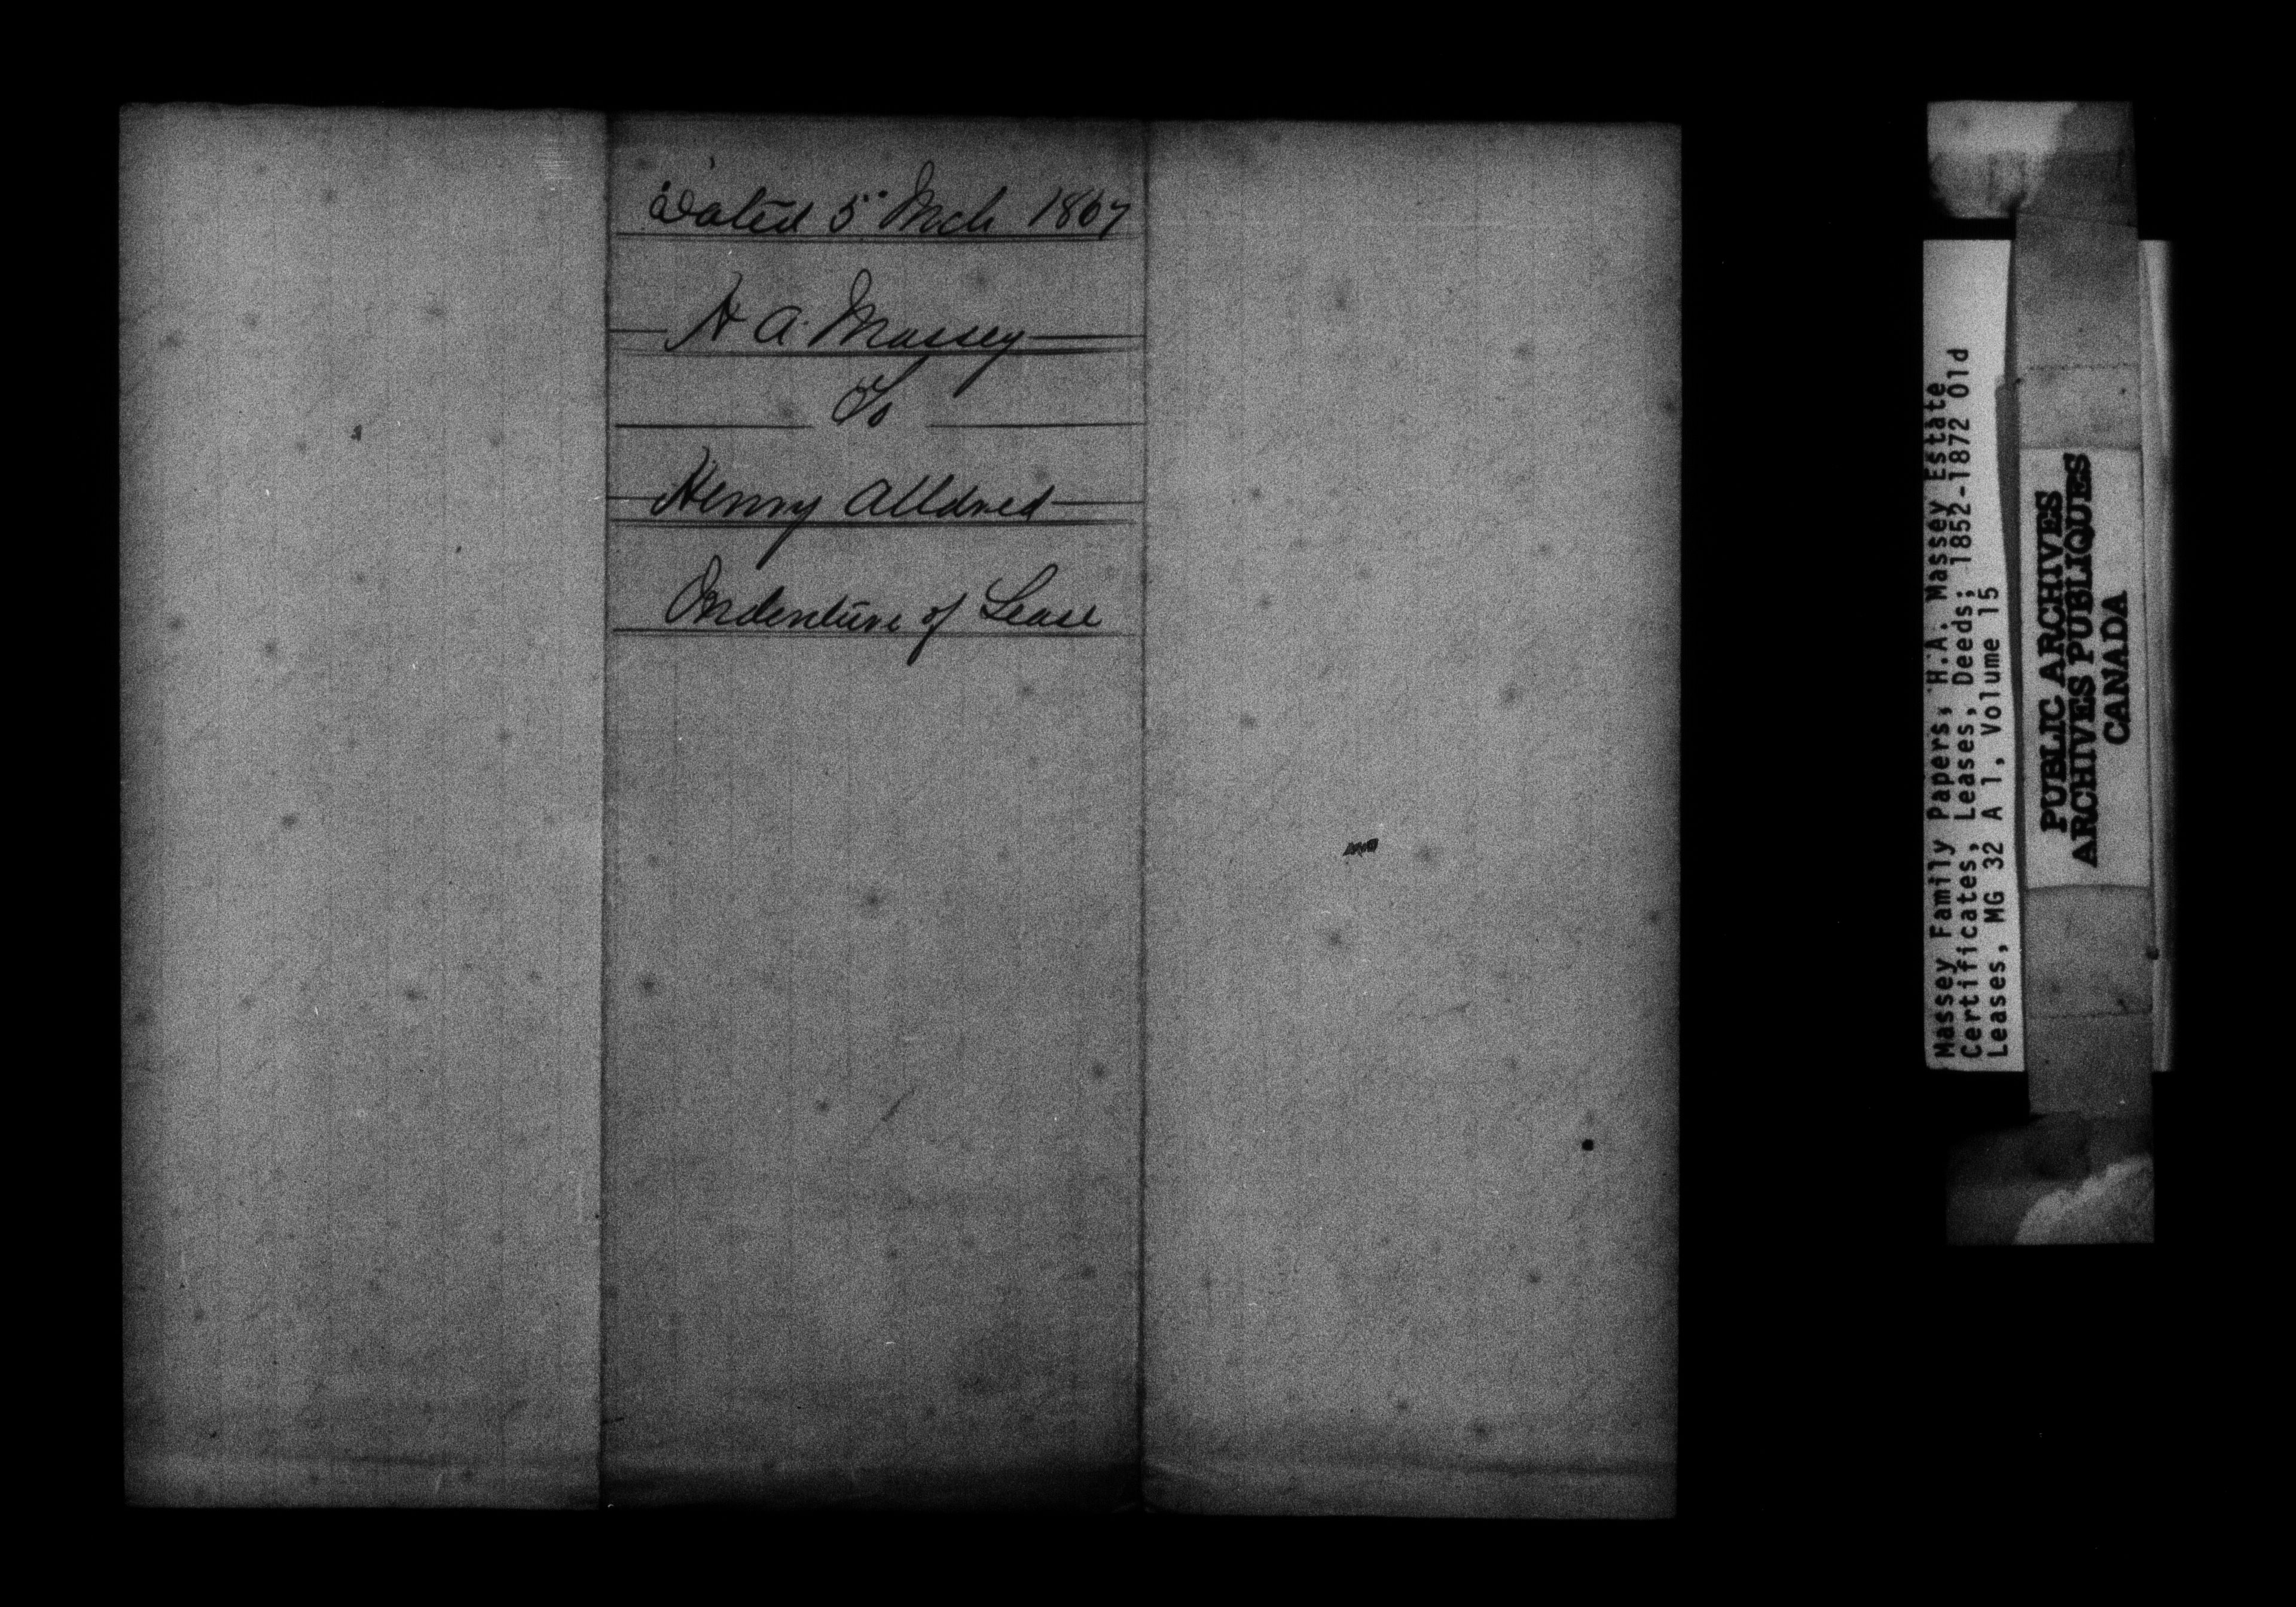 Dated 5" Mch 1867
H A. Massey
To
Henry Alldred
Indenture of Lease
Massey Family Papers, H.A. Massey Estate
Certificates, Leases, Deeds; 1852-1872 Old
Leases, MG 32 A 1, Volume 15
PUBLIC ARCHIVES
ARCHIVES PUBLIQUES
CANADA